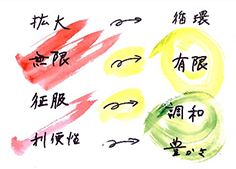 拡大 → 循環
無限 → 有限
征服 → 調和
利便性 → 豊かさ